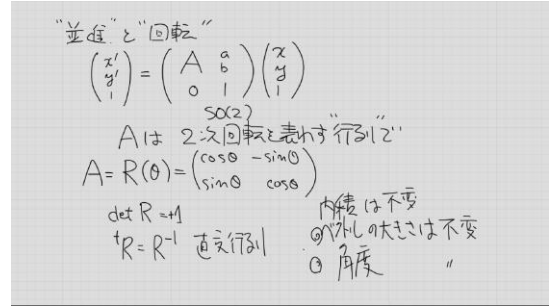 "並進"と"回転"
(x' y' 1) = (A a b 0 1)(x y 1)
SO(2)
Aは 2次回転を表わす"行列"で
A = R(θ) = (cosθ -sinθ sinθ cosθ)
det R = +1
ᵗR = R⁻¹ 直交行列
内積は不変
◎ベクトルの大きさは不変
◎角度 〃